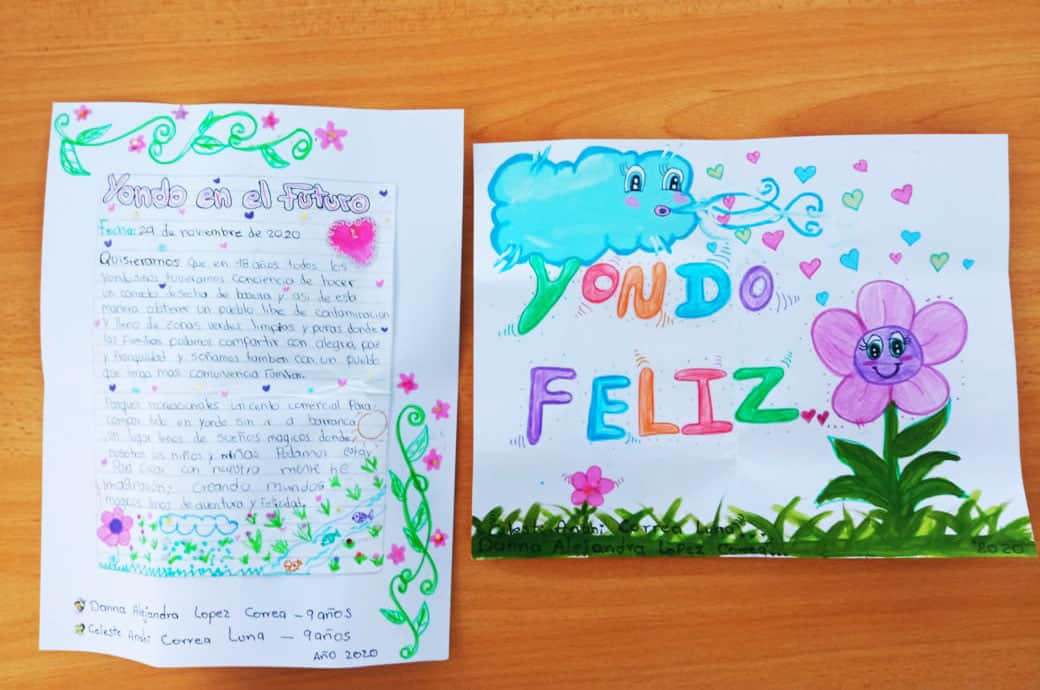 Yondo en el Futuro
Fecha: 29 de noviembre de 2020
Quisieramos que en 18 años todos los
yondusinos tuvieramos conciencia de hacer
un correcto desecho de basura y asi de esta
manera obtener un pueblo libre de contaminacion
y lleno de zonas verdes limpias y puras donde
las familias podamos compartir con alegria, paz
y tranquilidad y soñamos tambien con un pueblo
que tenga mas convivencia familiar.
Parques recreacionales un cento comercial Para
comprar todo en yondo sin ir a barranca
un lugar llenos de sueños magicos donde
nosotros los niños y niñas Podamos
Para crear con nuestra mente he
imaginacion; creando mundos
magicos llenos de aventura y felicidad.
Danna Alejandra Lopez Correa - 9 años
Celeste Anshi Correa Luna - 9 años
AÑO 2020
YONDO
FELIZ..
Celeste Anshi Correa Luna
Danna Alejandra Lopez Correa...
"2020"